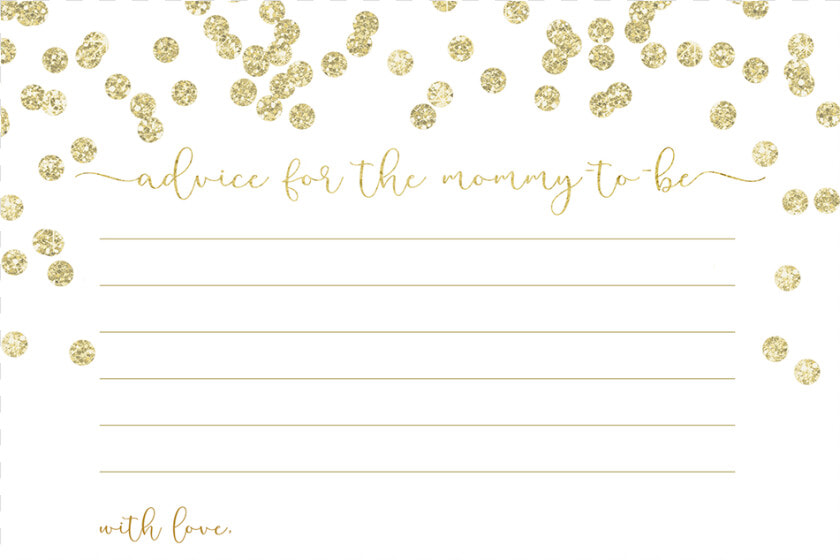 advice for the mommy-to-be
with love,